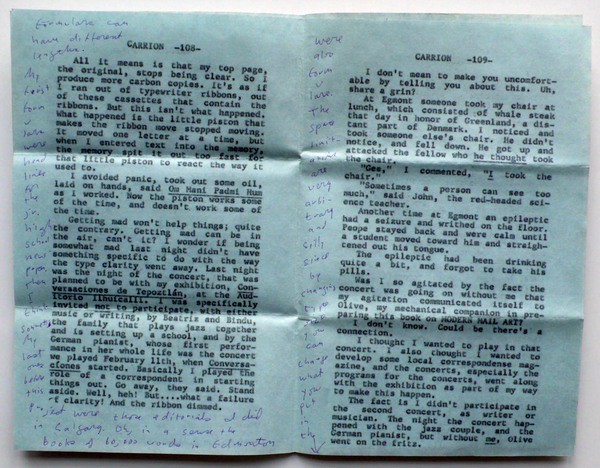 Formulas can
have different
lengths.
My
first
form
were
head
lines
for
the
jr.
high
school
news
paper
when
I
CARRION -108-
All it means is that my top page,
the original, stops being clear. So I
produce more carbon copies. It's as if
I ran out of typewriter ribbons, out
of these cassettes that contain the
ribbons. But this isn't what happened,
what happened is the little piston that
makes the ribbon move stopped moving.
It moved one letter at a time, but
when I entered text into the memory,
the memory spit it out too fast for
that little piston to react the way it
used to.
I avoided panic, took out some oil,
laid on hands, said Om Mani Padni Hum
as I worked. Now the piston works some
of the time, and doesn't work some of
the time.
Getting mad won't help things; quite
the contrary. Getting mad can be in
the air, can't it? I wonder if being
somewhat mad last night didn't have
something specific to do with the way
the type clarity went away. Last night
was the night of the concert, that was
planned to be with my exhibition, Con-
versaciones de Tepoztlán, at the Aud-
itorio Ilhuicalli. I was specifically
invited not to participate, with either
music or writing, by Beatrix and Bindu,
the family that plays jazz together
and is setting up a school, and by the
German pianist, whose first perfor-
mance in her whole life was the concert
we played February 11th, when Conversa-
ciones started. Basically I played the
role of a correspondent in starting
things out. Go away, they said. Stand
aside. Well, heh! But....what a failure
of clarity! And the ribbon dimmed.
project were those editorials I did
in Calgary. Oh, in a sense the
books of 60,000 words in Edmonton
were
also
form
the
space
limit
were
very
arbi-
trary
and
silly
since
by
can
change
what
you
put
in
CARRION -109-
I don't mean to make you uncomfort-
able by telling you about this. Uh,
share a grin?
At Egmont someone took my chair at
lunch, which consisted of whale steak
that day in honor of Greenland, a dis-
tant part of Denmark. I noticed and
took someone else's chair. He didn't
notice, and fell down. He got up and
attacked the fellow who he thought took
the chair.
"Gee," I commented, "I took the
chair."
"Sometimes a person can see too
much," said John, the red-headed sci-
ence teacher.
Another time at Egmont an epileptic
had a seizure and writhed on the floor.
Peope stayed back and were calm until
a student moved toward him and straigh-
tened out his tongue.
The epileptic had been drinking
quite a bit, and forgot to take his
pills.
Was I so agitated by the fact the
concert was going on without me that
my agitation communicated itself to
Olive, my mechanical companion in pre-
paring this book on MODERN HAIR ART?
I don't know. Could be there's a
connection.
I thought I wanted to play in that
concert. I also thought I wanted to
develop some local correspondense mag-
azine, and the concerts, especially the
programs for the concerts, went along
with the exhibition as part of my way
to make this happen.
The fact is I didn't participate in
the second concert, as writer or
musician. The night the concert hap-
pened with the jazz couple, and the
German pianist, but without me, Olive
went on the fritz.